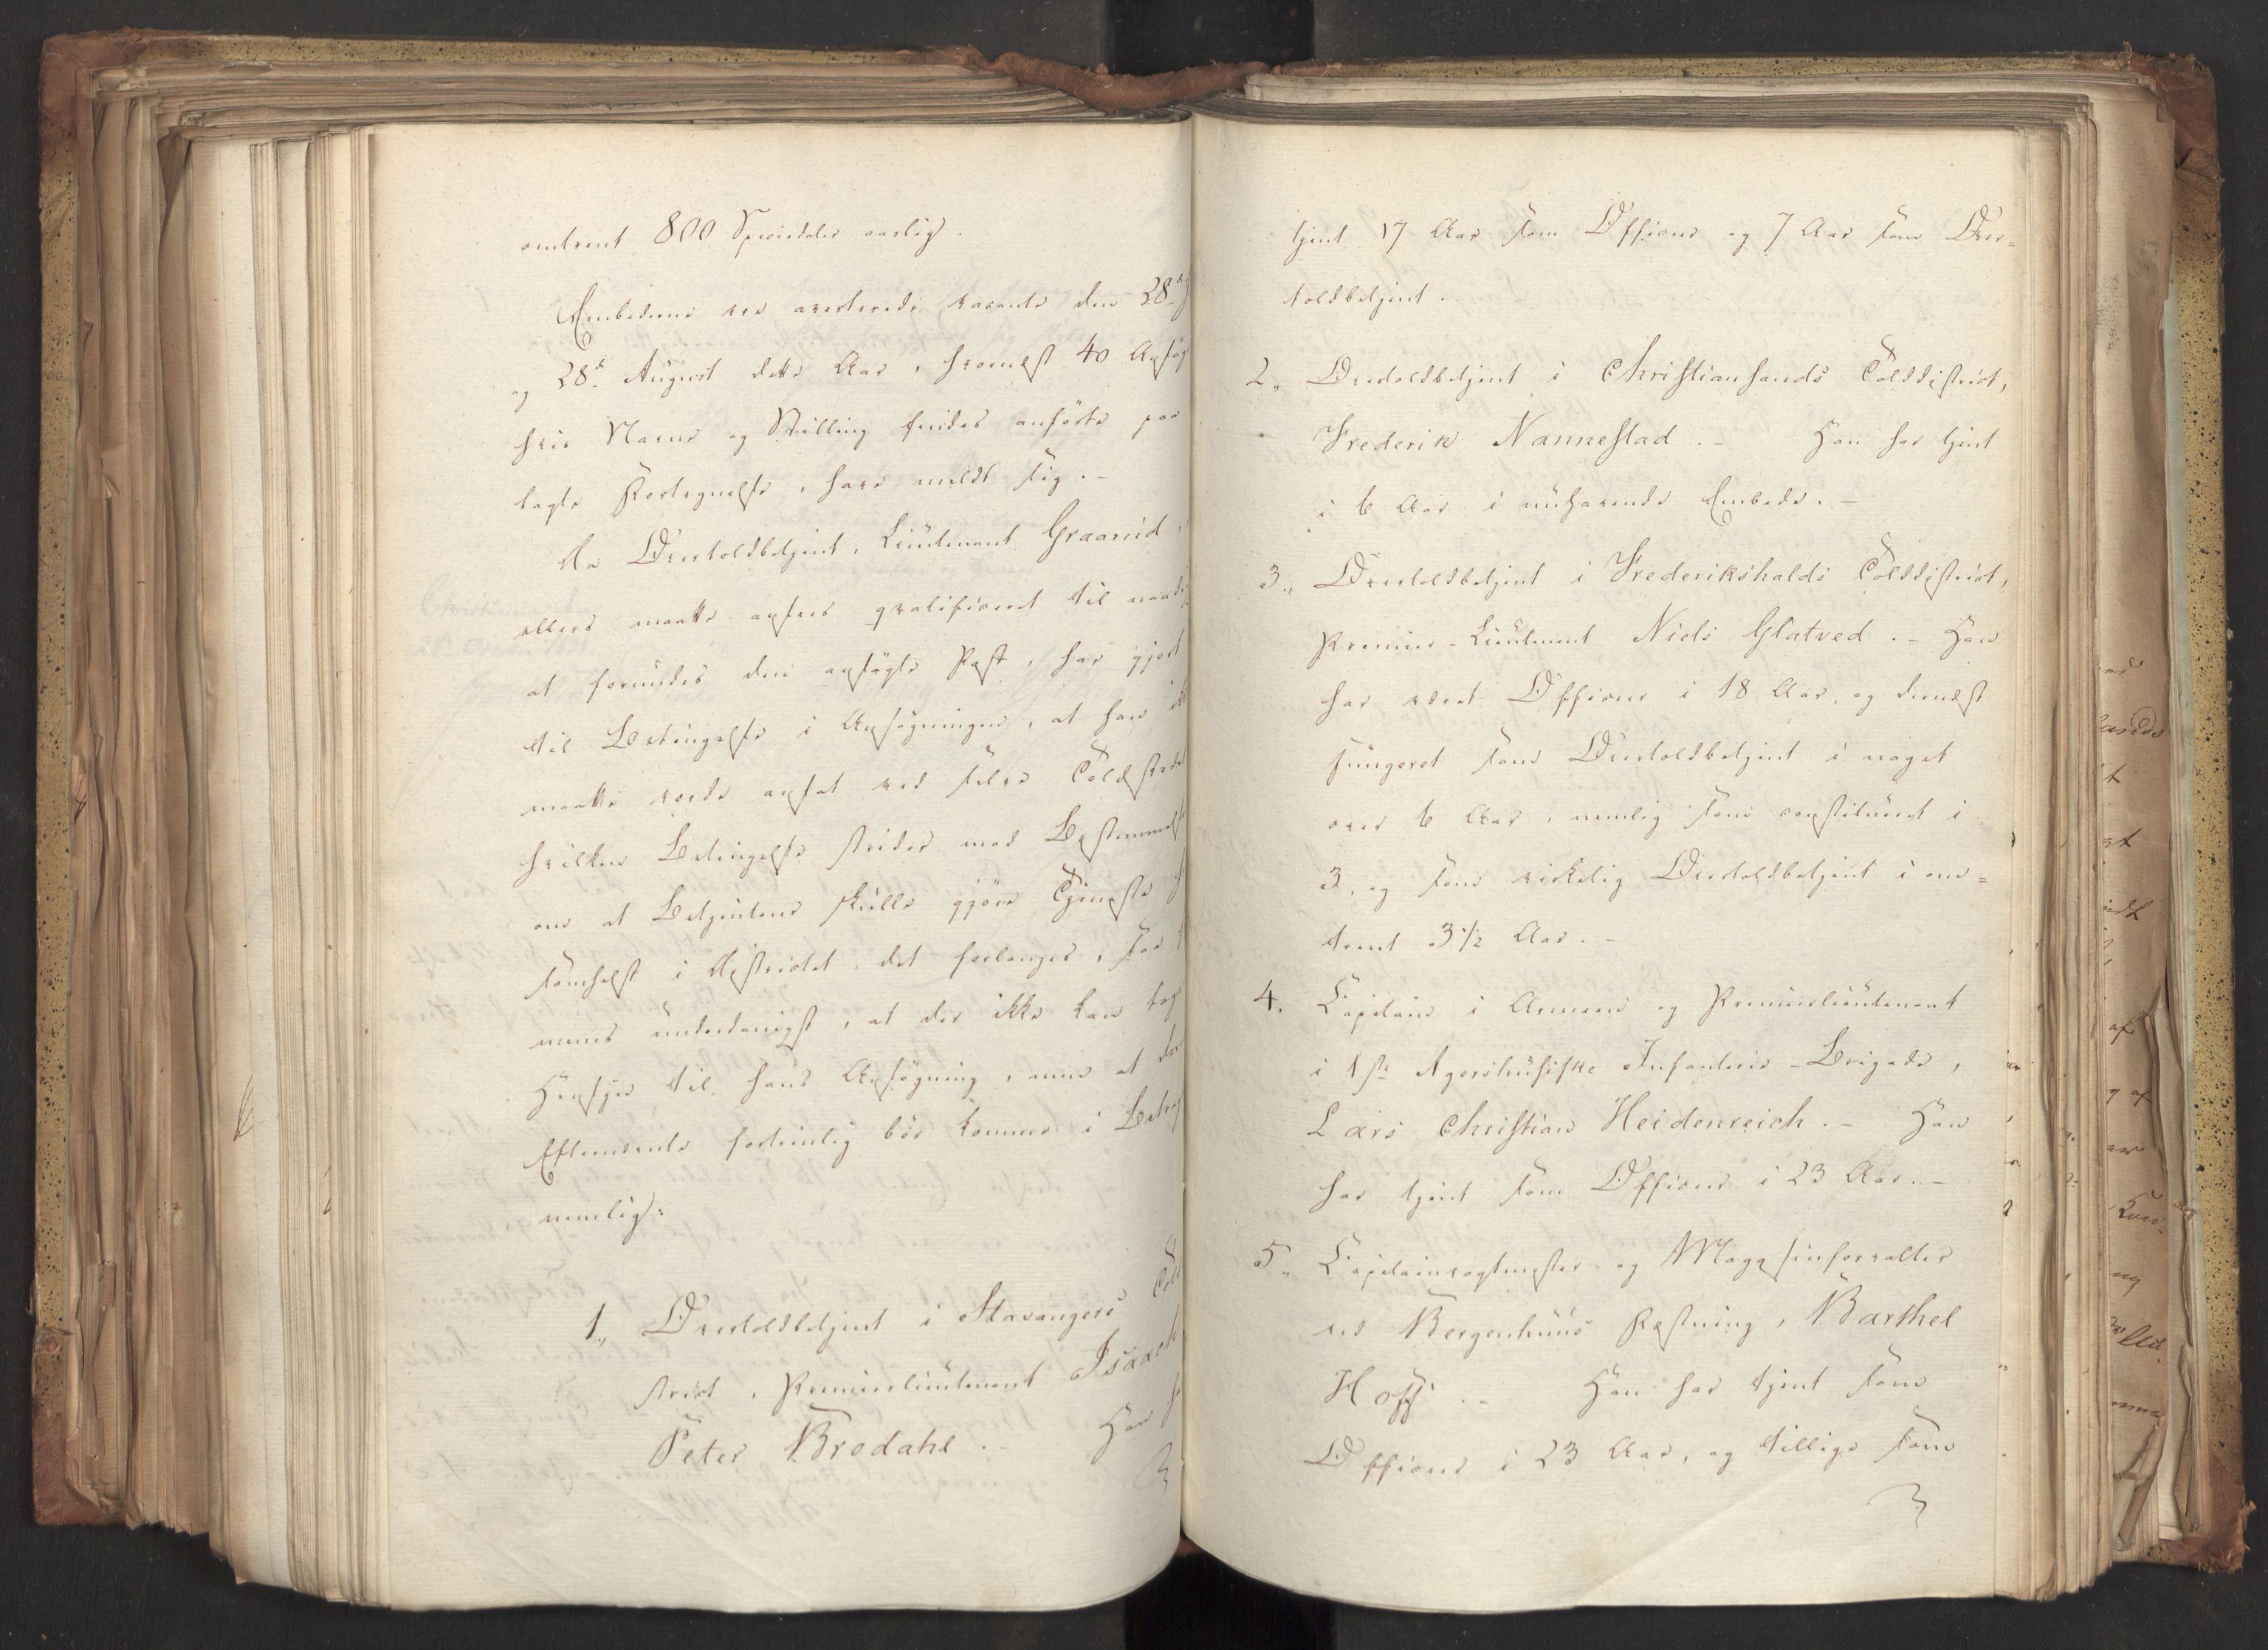 omtrent 800 Speciedaler aarlig.
Embederne ere averterede vacante den 28de
og 28de August dette Aar, hvornæst 40 Ansøg
hvis Navne og Stilling findes anførte paa
lagte Fortegnelse, have meldt sig.-
Da Overtoldbetjent, Lieutenant Graarud,
ellers maatte ansees qvalificeret til naadigst
at forundes den ansøgte Post, har gjort
til Betingelse i Ansøgningen, at han ikke
maatte vorde ansat ved selve Toldstedet
hvilken Betingelse strider mod Bestemmelsen
om at Betjentene skulle gjøre Tjeneste h
somhelst i Districtet, det forlanges, saa
menes underdanigst, at der ikke kan tages
Hensyn til hans Ansøgning, men at der
Eftermeldte fortrinlig bør komme i Betragt
nemlig:
1., Overtoldbetjent i Stavangers Told
strict, Premierlieutenant Isaach
Peter Brodahl.- Han h
tjent 17 Aar som Officeer og 7 Aar som Over=
toldbetjent.
2., Overtoldbetjent i Christiansands Tolddistrict,
Frederik Nannestad.- Han har tjent
i 6 Aar i nuhavende Embede.-
3., Overtoldbetjent i Frederikshalds Tolddistrict,
Premier-Lieutenant Niels Glatved.- Han
har været Officeer i 18 Aar, og dernæst
fungeret som Overtoldbetjent i noget
over 6 Aar, nemlig som constitueret i
3, og som virkelig Overtoldbetjent i om=
trent 3 1/2 Aar.-
4. Capitain i Armeen og Premierlieutenant
i 1ste Agershusiske Infanterie-Brigade,
Lars Christian Heidenreich.- Han
har tjent som Officeer i 23 Aar.-
5., Capitainvagtmester og Magasinforvalter
ved Bergenhuus Fæstning, Barthel
Hoff.- Han har tjent som
Officeer i 23 Aar, og tillige som